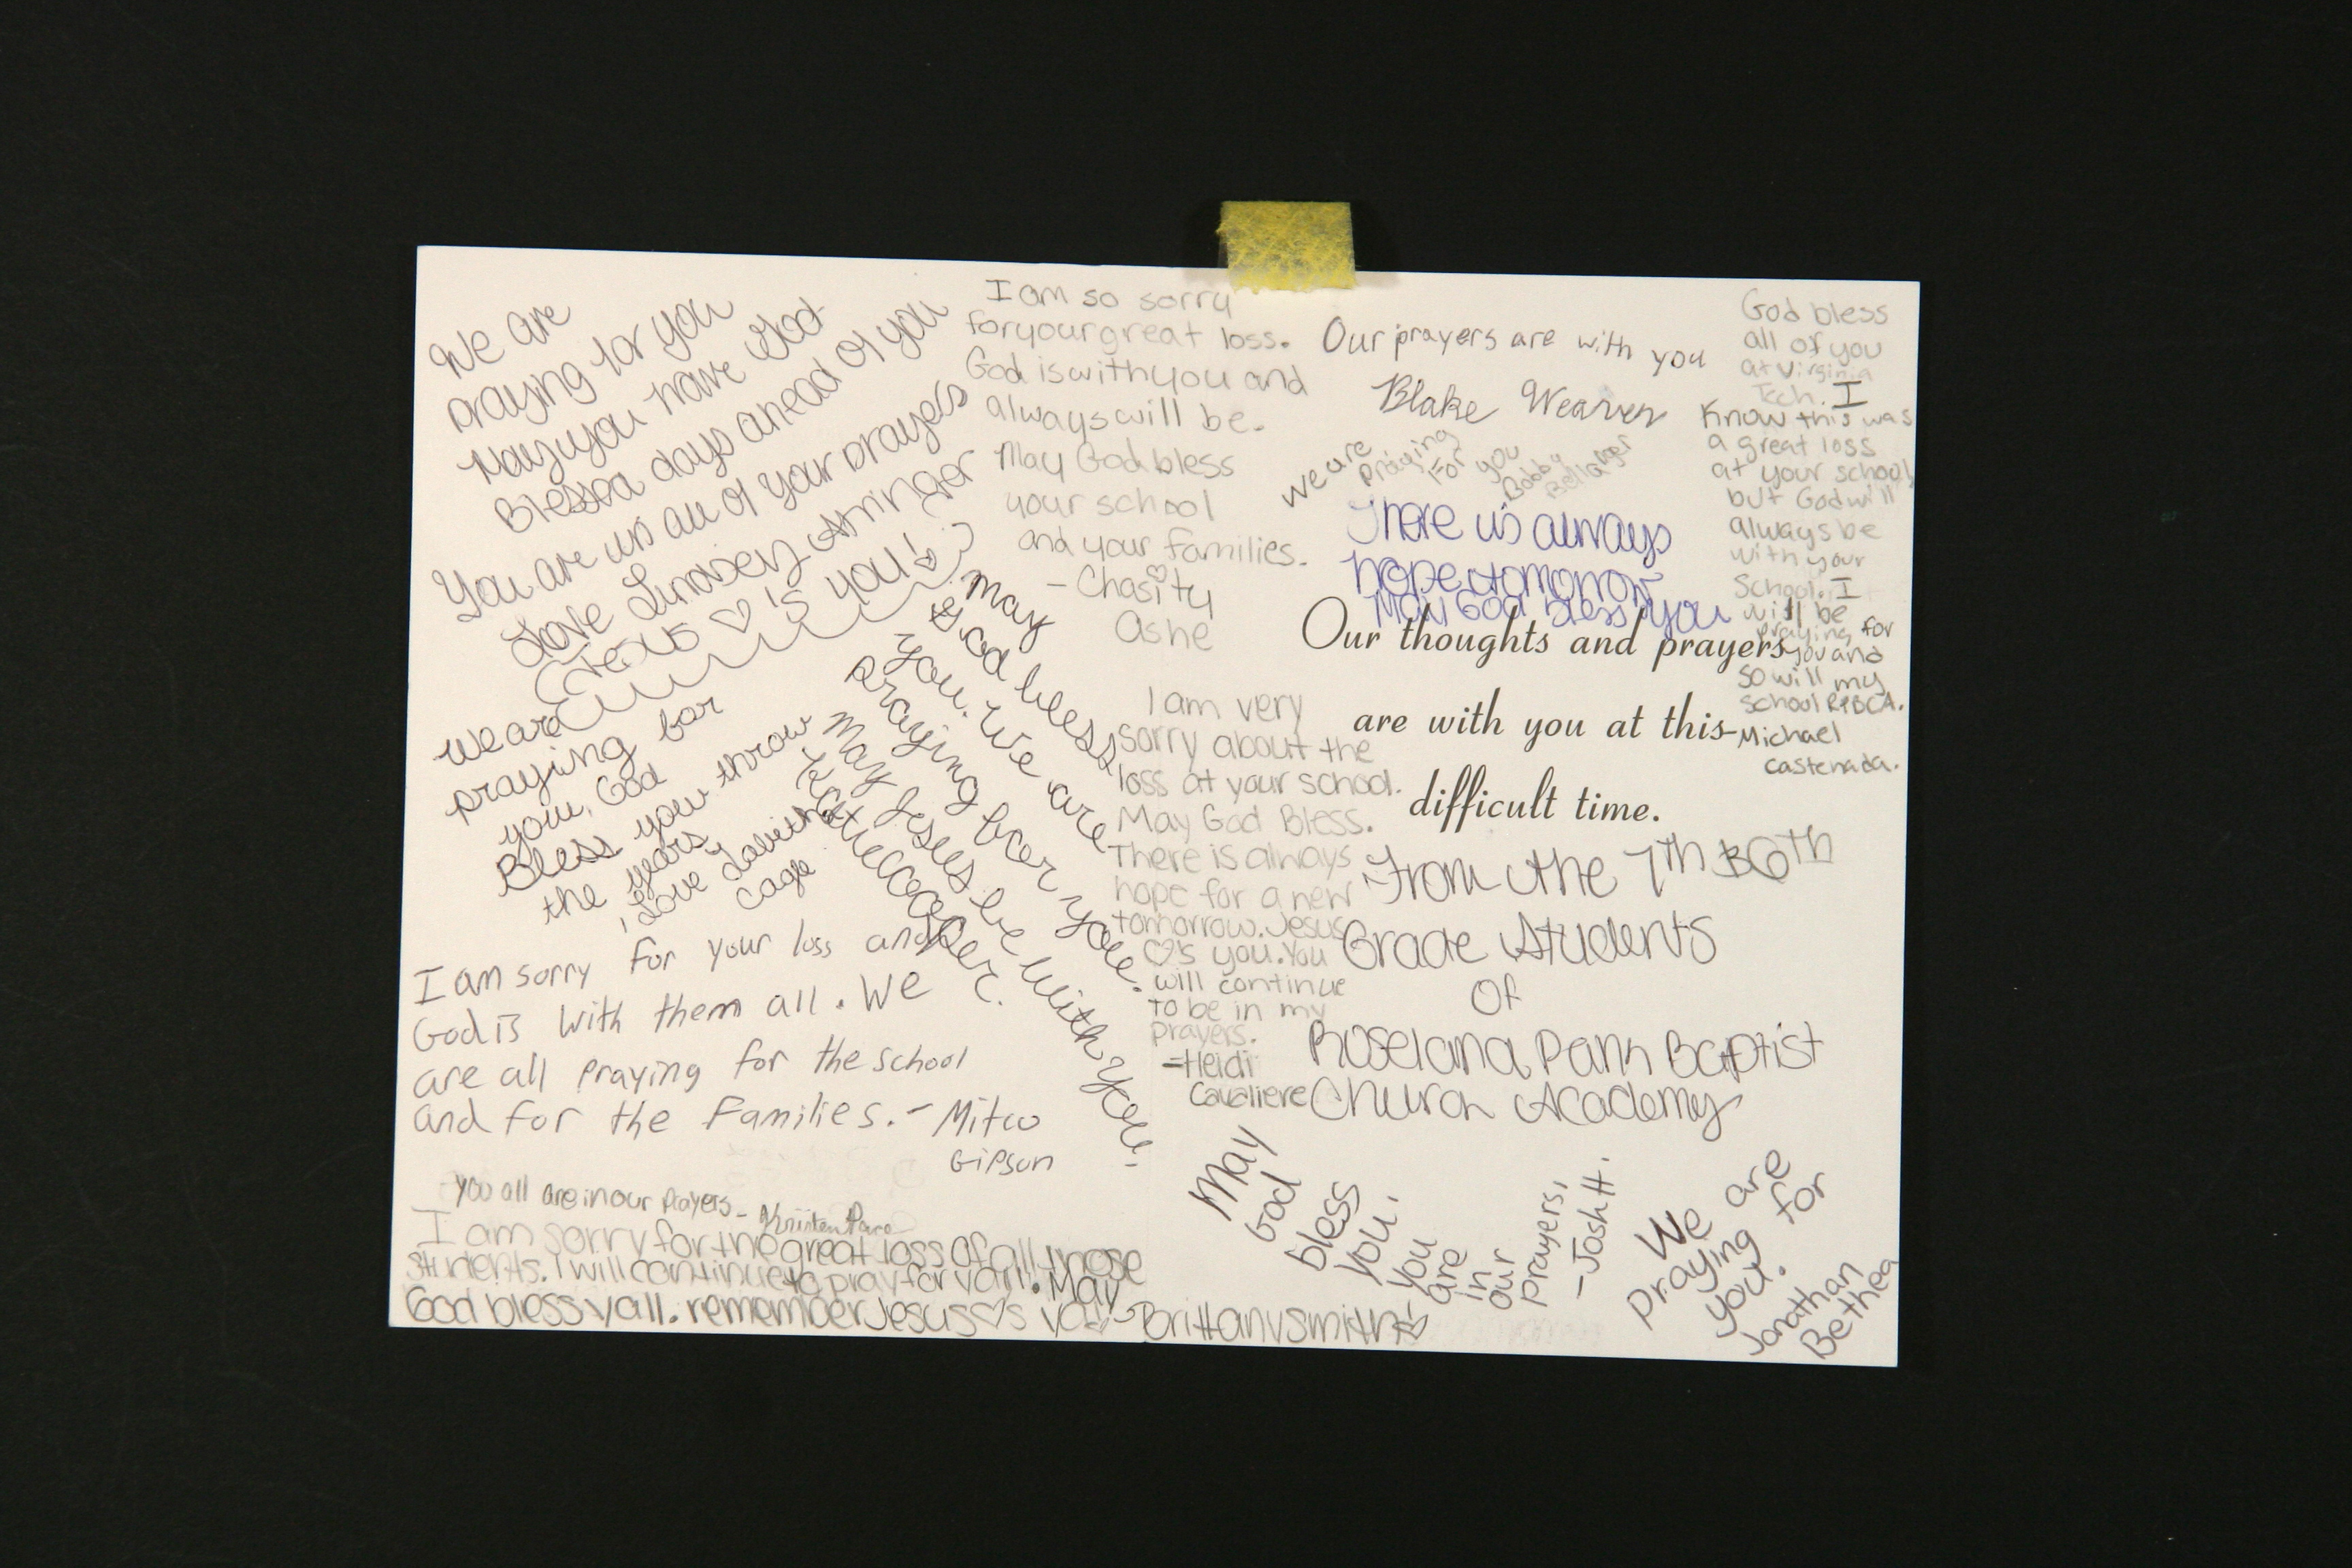 We are
praying for you
May you have God
Blessed days ahead of you
You are in all of your prayers
Love Lindsey Arringer
Jesus ♡ is you!
I am so sorry
for your great loss.
God is with you and
always will be.
May God bless
your school
and your families.
- Chasity
Ashe
Our prayers are with you
Blake Weaver
we are
praying
For
you
Bobby
Bellanger
There is always
hope tomorrow
May God bless you
God bless
all of you
at Virginia
Tech. I
Know this was
a great loss
at your school
but God will
always be
with your
School. I
will be
praying for
you and
so will my
school RPBCA.
-Michael
Castenada.
Our thoughts and prayers
are with you at this
difficult time.
From the 7th & 6th
Grade Students
Of
Roseland Park Baptist
Church Academy
we are
praying for
you. God
Bless you throw
the years,
Love
Cagle
May
God bless
you. We are
praying for you.
May Jesus be with you.
I am very
sorry about the
loss at your school.
May God Bless.
There is always
hope for a new
tomorrow. Jesus
♡'s you. You
will continue
to be in my
prayers.
-Heidi
Cavaliere
I am sorry for your loss and
God is with them all. We
are all praying for the school
and for the Families. - Mitch
Gipson
you all are in our prayers - Kristen Pace
I am sorry for the great loss of all those
students. I will continue to pray for ya'll. May
God bless yall. remember Jesus ♡s ya'll - Brittany Smith
May
God
bless
you.
you
are
in
our
prayers,
- Josh H.
We are
praying for
you.
Jonathan
Bethea